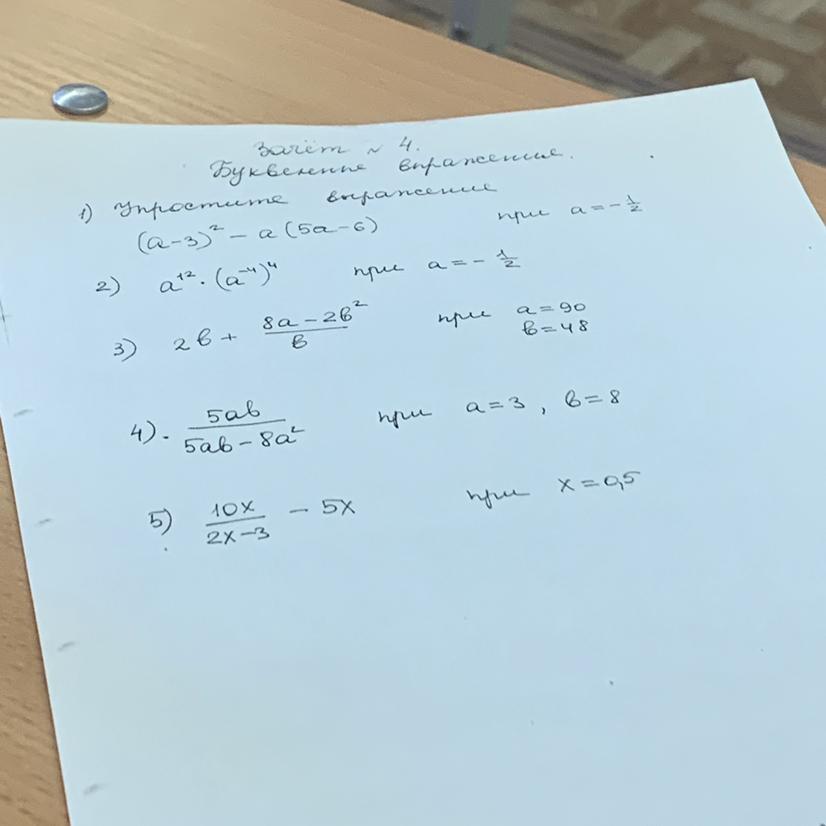 Зачёт № 4.
Буквенные выражения.
1) Упростите выражение
(a-3)² - a(5a-6) при a = -1/2
2) a¹² · (a⁻⁴)⁴ при a = -1/2
3) 2b + (8a - 2b²)/b при a = 90
b = 48
4). 5ab/(5ab - 8a²) при a = 3, b = 8
5) 10x/(2x-3) - 5x при x = 0,5